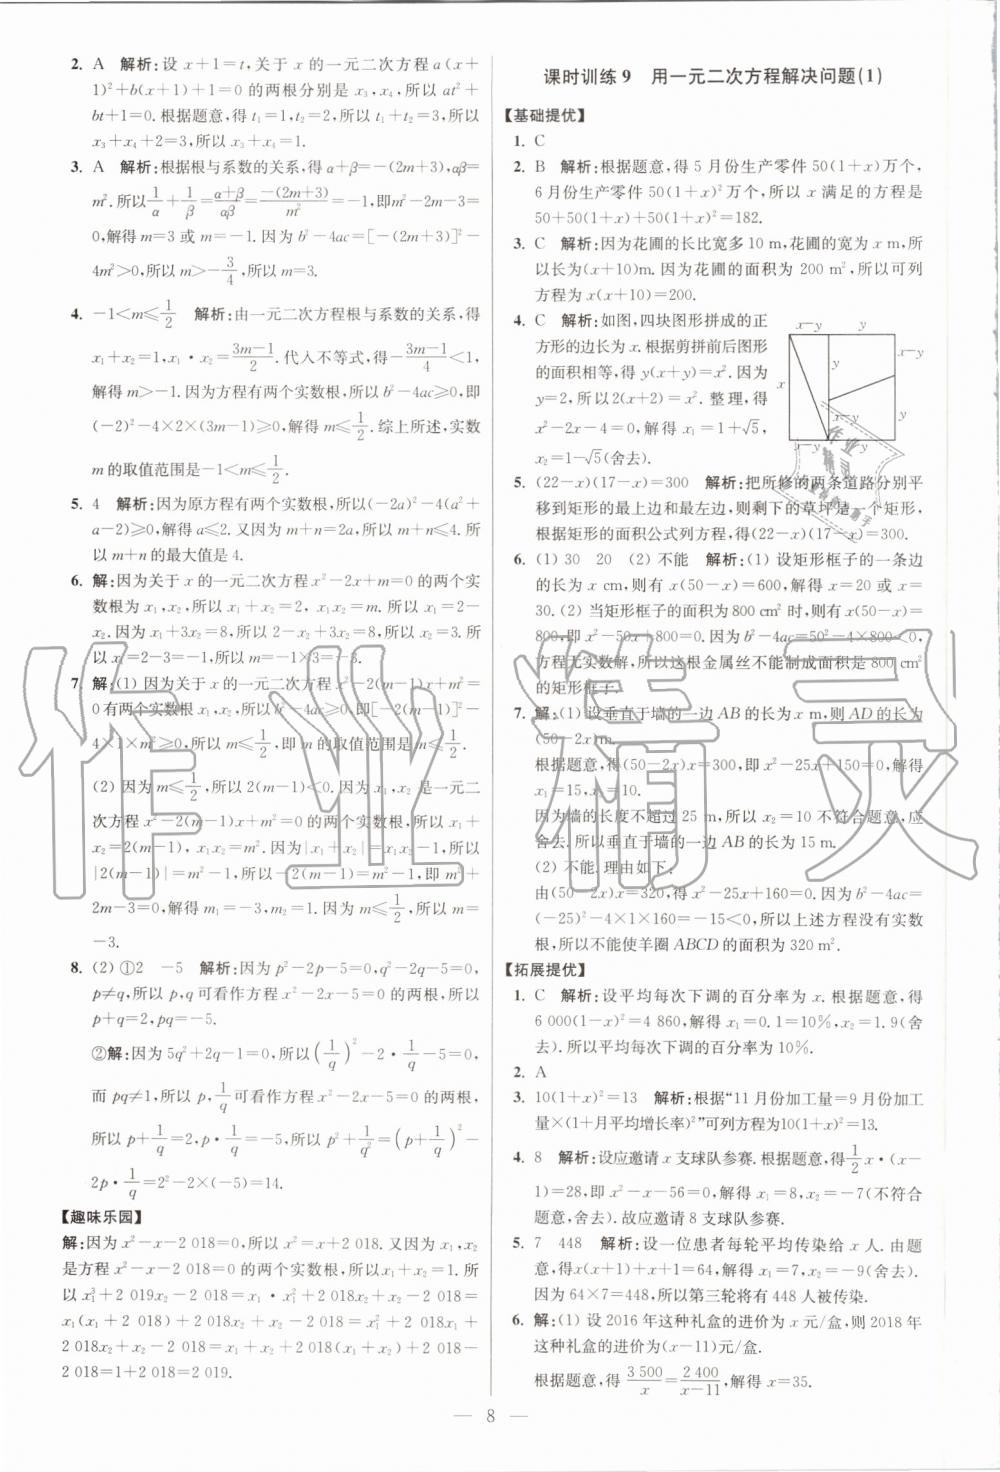 2. A 解析:设 x+1=t,关于 x 的一元二次方程 a(x+
1)²+b(x+1)+1=0 的两根分别是 x₃,x₄,所以 at²+
bt+1=0.根据题意,得 t₁=1,t₂=2,所以 t₁+t₂=3,所以
x₃+x₄+2=3,所以 x₃+x₄=1.
3. A 解析:根据根与系数的关系,得 α+β=-(2m+3),αβ=
m².所以 1/α+1/β=(α+β)/αβ=-(2m+3)/m²=-1,即 m²-2m-3=
0,解得 m=3 或 m=-1.因为 b²-4ac=[-(2m+3)]²-
4m²>0,所以 m>-3/4,所以 m=3.
4. -1<m≤1/2 解析:由一元二次方程根与系数的关系,得
x₁+x₂=1,x₁·x₂=(3m-1)/2.代入不等式,得-(3m-1)/4<1,
解得 m>-1.因为方程有两个实数根,所以 b²-4ac≥0,即
(-2)²-4×2×(3m-1)≥0,解得 m≤1/2.综上所述,实数
m 的取值范围是-1<m≤1/2.
5. 4 解析:因为原方程有两个实数根,所以(-2a)²-4(a²+
a-2)≥0,解得 a≤2.又因为 m+n=2a,所以 m+n≤4.所
以 m+n 的最大值是 4.
6. 解:因为关于 x 的一元二次方程 x²-2x+m=0 的两个实
数根为 x₁,x₂,所以 x₁+x₂=2, x₁x₂=m.所以 x₁=2-
x₂.因为 x₁+3x₂=8,所以 2-x₂+3x₂=8,所以 x₂=3.所
以 x₁=2-3=-1,所以 m=-1×3=-3.
7. 解:(1) 因为关于 x 的一元二次方程 x²-2(m-1)x+m²=
0 有两个实数根 x₁,x₂,所以 b²-4ac≥0,即[-2(m-1)]²-
4×1×m²≥0,所以 m≤1/2,即 m 的取值范围是 m≤1/2.
(2) 因为 m≤1/2,所以 2(m-1)<0.因为 x₁,x₂ 是一元二
次方程 x²-2(m-1)x+m²=0 的两个实数根,所以 x₁+
x₂=2(m-1), x₁x₂=m².因为|x₁+x₂|=x₁x₂-1,所以
|2(m-1)|=m²-1,所以-2(m-1)=m²-1,即 m²+
2m-3=0,解得 m₁=-3,m₂=1.因为 m≤1/2,所以 m=
-3.
8. (2) ①2 -5 解析:因为 p²-2p-5=0,q²-2q-5=0,
p≠q,所以 p,q 可看作方程 x²-2x-5=0 的两根,所以
p+q=2,pq=-5.
②解:因为 5q²+2q-1=0,所以(1/q)²-2·1/q-5=0,
而 pq≠1,所以 p,1/q可看作方程 x²-2x-5=0 的两根,
所以 p+1/q=2,p·1/q=-5,所以 p²+1/q²=(p+1/q)²-
2p·1/q=2²-2×(-5)=14.
【趣味乐园】
解:因为 x²-x-2 018=0,所以 x²=x+2 018.又因为 x₁,x₂
是方程 x²-x-2 018=0 的两个实数根,所以 x₁+x₂=1.所
以 x₁³+2 019x₂-2 018=x₁·x₁²+2 018x₂+x₂-2 018=
x₁(x₁+2 018)+2 018x₂+x₂-2 018=x₁²+2 018x₁+
2 018x₂+x₂-2 018=x₁+2 018+2 018(x₁+x₂)+x₂-
2 018=1+2 018=2 019.
课时训练 9 用一元二次方程解决问题(1)
【基础提优】
1. C
2. B 解析:根据题意,得 5 月份生产零件 50(1+x)万个,
6 月份生产零件 50(1+x)²万个,所以 x 满足的方程是
50+50(1+x)+50(1+x)²=182.
3. C 解析:因为花圃的长比宽多 10 m,花圃的宽为 x m,所
以长为(x+10)m.因为花圃的面积为 200 m²,所以可列
方程为 x(x+10)=200.
4. C 解析:如图,四块图形拼成的正
方形的边长为 x.根据剪拼前后图形
的面积相等,得 y(x+y)=x².因为
y=2,所以 2(x+2)=x². 整理,得
x²-2x-4=0,解得 x₁=1+√5,
x₂=1-√5(舍去).
x-y y
x
y
x-y
x-y
y
y
5. (22-x)(17-x)=300 解析:把所修的两条道路分别平
移到矩形的最上边和最左边,则剩下的草坪是一个矩形,
根据矩形的面积公式列方程,得(22-x)(17-x)=300.
6. (1) 30 20 (2) 不能 解析:(1) 设矩形框子的一条边
的长为 x cm,则有 x(50-x)=600,解得 x=20 或 x=
30.(2) 当矩形框子的面积为 800 cm² 时,则有 x(50-x)=
800,即 x²-50x+800=0.因为 b²-4ac=50²-4×800<0,
方程无实数解,所以这根金属丝不能制成面积是 800 cm²
的矩形框子.
7. 解:(1) 设垂直于墙的一边 AB 的长为 x m,则 AD 的长为
(50-2x)m.
根据题意,得(50-2x)x=300,即 x²-25x+150=0,解得
x₁=15,x₂=10.
因为墙的长度不超过 25 m,所以 x₂=10 不符合题意,应
舍去.所以垂直于墙的一边 AB 的长为 15 m.
(2) 不能.理由如下.
由(50-2x)x=320,得 x²-25x+160=0.因为 b²-4ac=
(-25)²-4×1×160=-15<0,所以上述方程没有实数
根,所以不能使羊圈 ABCD 的面积为 320 m².
【拓展提优】
1. C 解析:设平均每次下调的百分率为 x.根据题意,得
6 000(1-x)²=4 860,解得 x₁=0.1=10%,x₂=1.9(舍
去).所以平均每次下调的百分率为 10%.
2. A
3. 10(1+x)²=13 解析:根据“11 月份加工量=9 月份加工
量×(1+月平均增长率)²”可列方程为10(1+x)²=13.
4. 8 解析:设应邀请 x 支球队参赛.根据题意,得1/2x·(x-
1)=28,即 x²-x-56=0,解得 x₁=8,x₂=-7(不符合
题意,舍去).故应邀请 8 支球队参赛.
5. 7 448 解析:设一位患者每轮平均传染给 x 人.由题
意,得 x(x+1)+x+1=64,解得 x₁=7,x₂=-9(舍去).
因为 64×7=448,所以第三轮将有 448 人被传染.
6. 解:(1) 设 2016 年这种礼盒的进价为 x 元/盒,则 2018 年
这种礼盒的进价为(x-11)元/盒.
根据题意,得 3 500/x=2 400/(x-11),解得 x=35.
— 8 —
作业精灵